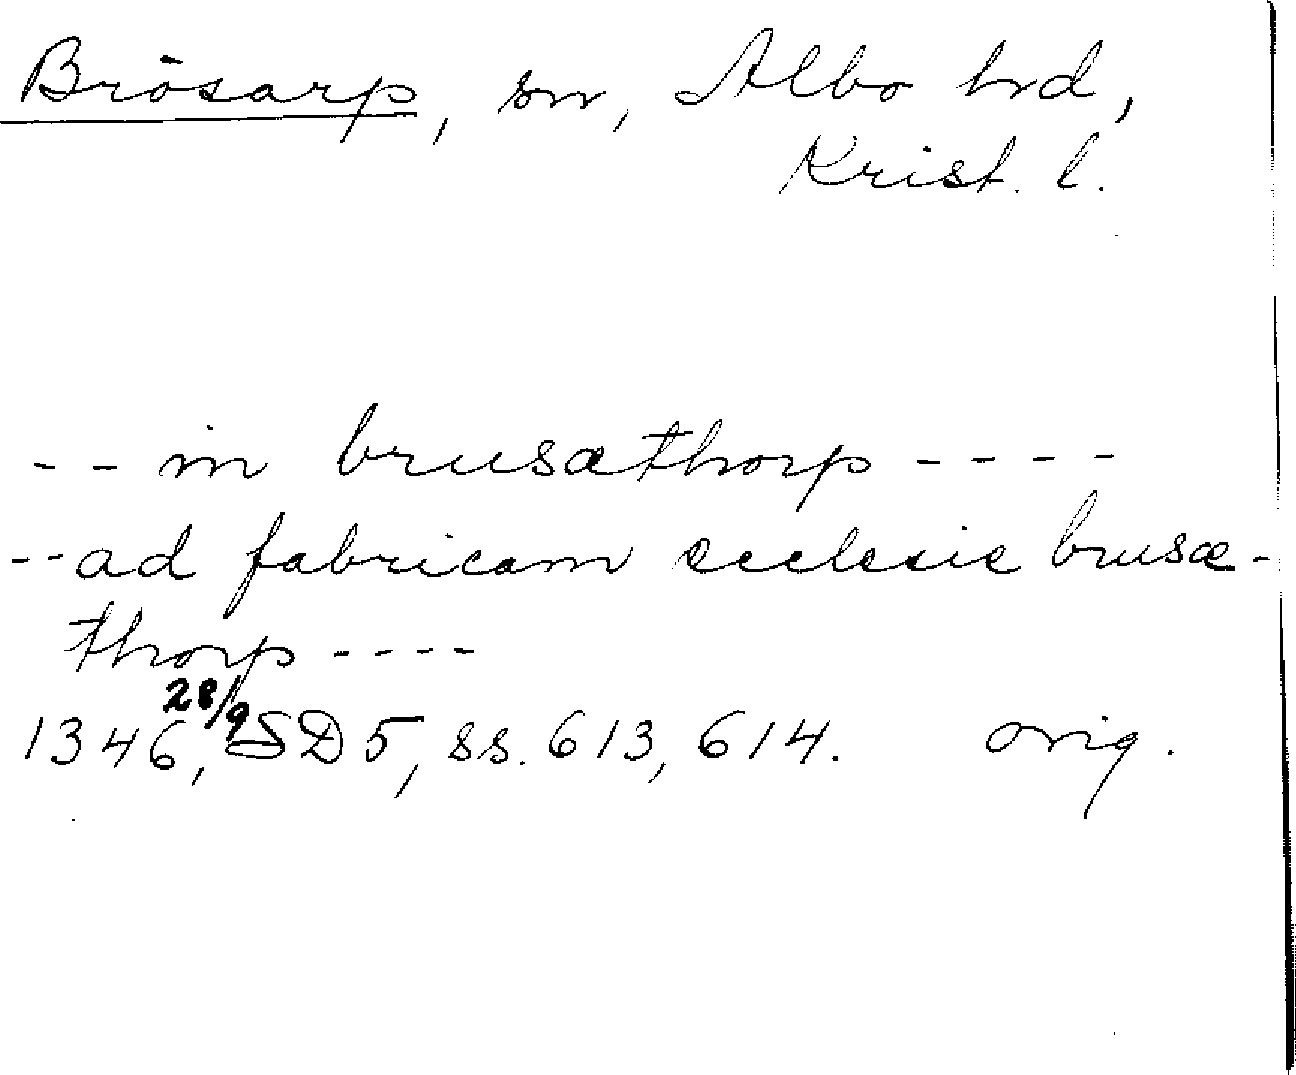 Brösarp, sn, Albo hd,
Krist. l.
-- in brusæthorp ----
-- ad fabricam ecclesie brusæ-
thorp ----
1346, 28/9 SD 5, ss. 613, 614. orig.